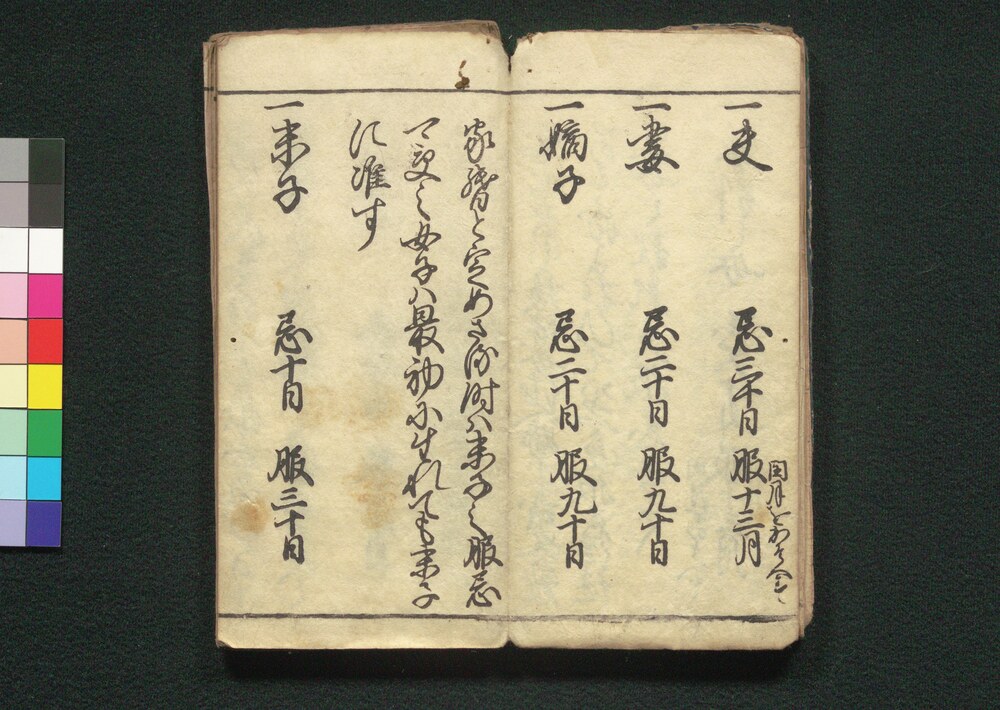 一夫 忌三十日 服十三月
閏月を
一妻 忌二十日 服九十日
一嫡子 忌二十日 服九十日
家督と定めさる時ハ末子之服忌
可受之女子ハ最初に生れても末子
に准す
一末子 忌十日 服三十日